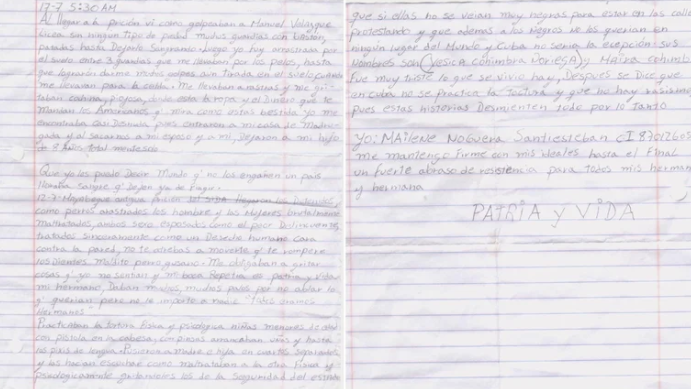 17-7 5:30 AM
Al llegar a la prición vi como golpeaban a Manuel Velazque
licea sin ningun tipo de piedad muchos guardias con baston,
patadas hasta Dejarlo Sangrando luego yo fuy arrastrada por
el suelo entre 3 guardias que me llevaban por los pelos, hasta
que lograron darme muchos golpes aun tirada en el suelo cuando
me llevaron para la celda. Me llevaban a rastras y me gri-
taban cabrona, piojosa, donde esta la ropa y el Dinero que te
Mandan los Americanos y mira como estas bestida yo me
encontraba casi Desnuda, pues entraron a mi casa de Madru-
gada y al sacarnos a mi esposo y a mi, Dejaron a mi hijo
de 8 años total
Que yo les puedo Decir Mundo q' no los engañen un pais
llora sangre q' Dejen ya de
12-7 Mayabeque antigua Prición del SIDA llegaron los Detenidos,
como perros arrastrados los hombre y las Mujeres brutalmente
maltratadas, ambos seres exposados como el peor
tratados sinceramente como un Desecho humano Cara
contra la pared, no te atrebas a moverte q' te rompere
los Dientes, maldito perro gusano. Me obligaban a gritar
cosas q' yo no sentian y mi boca Repetia es patria y vida
mi hermano, Daban muchos, muchos palos por no ablar lo
q' querian pero no le importo a nadie "todos eramos
Hermanos"
Practicaban la tortura Fisica y psicologica niñas menores de edad
con pistola en la cabeza, con pinsas arrancaban uñas y hasta
los pixis de lengua. Pusieron a madre e hija en cuartos separados
y las hacian escuchar como maltrataban a la otra Fisica y
psicologicamente gritandoles los de la Seguridad del estado
que si ellas no se veian muy negras para estar en las calle
protestando y que además a los negros no los querian en
ningún lugar del Mundo y Cuba no seria la excepción sus
Nombres son (Yesica Cohimbra Noriega) y Maira Cohimb
fue muy triste lo que se vivio hay, Después se Dice que
en cuba no se practica la tortura y que no hay racismo
pues estas historias Desmienten todo por lo tanto
yo: MAilene NOguera Santiesteban CI 87012605
me mantengo Firme con mis ideales hasta el Final
un fuerte abraso de resistencia para todos mis herman
y hermana
PATRIA y VIDA